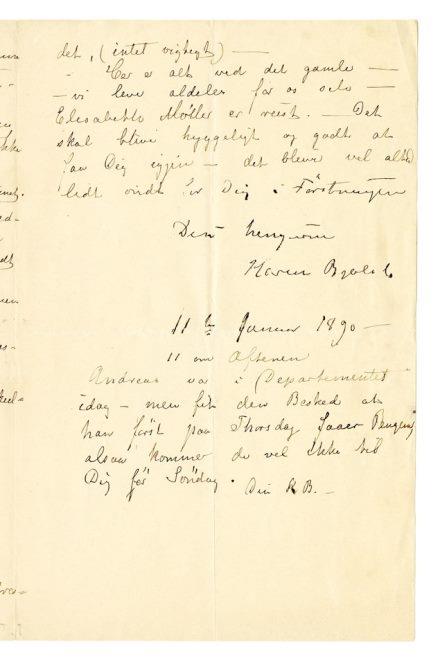 det, (intet vigtigt) —
- Her er alt ved det gamle —
- vi leve aldeles for os selv —
Elisabeth Möller er reist. - Det
skal blive hyggeligt og godt at
faa Dig igjen - det bliver vel altid
lidt ondt for Dig i Förstningen
Din
Karen
11 Januar 1890 -
11 om Aftenen
Andreas var i Departementet
idag - men fik den Besked at
han först paa Thorsdag faaer Pengene
altsaa kommer de vel ikke til
Dig för Söndag. Din K B. -